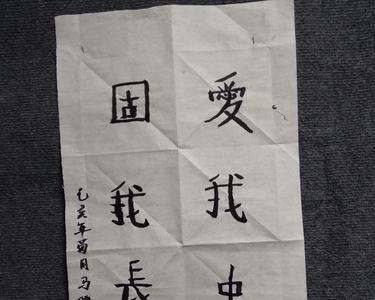 愛我中
固我長
己亥年菊月马